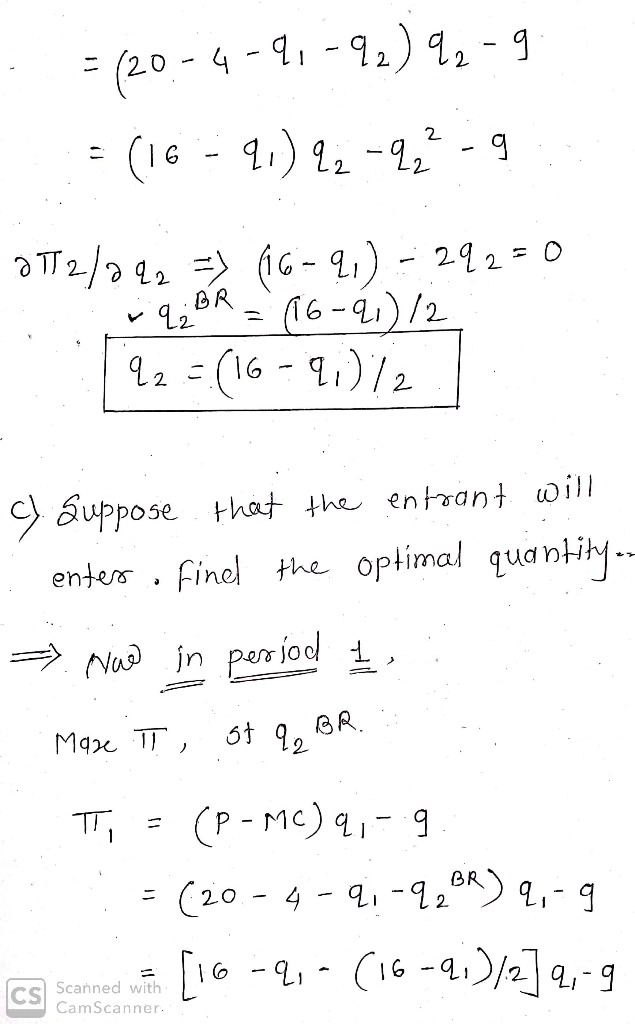 = (20 - 4 - q₁ - q₂) q₂ - 9
= (16 - q₁) q₂ - q₂² - 9
∂π2/∂q₂ => (16 - q₁) - 2q₂ = 0
✓ q₂ᴮᴿ = (16 - q₁)/2
q₂ = (16 - q₁)/2
c) Suppose that the entrant will
enter. find the optimal quantity..
=> Now in period 1,
Max π, st q₂ᴮᴿ.
π₁ = (P - MC) q₁ - 9
= (20 - 4 - q₁ - q₂ᴮᴿ) q₁ - 9
= [16 - q₁ - (16 - q₁)/2] q₁ - 9
CS Scanned with
CamScanner